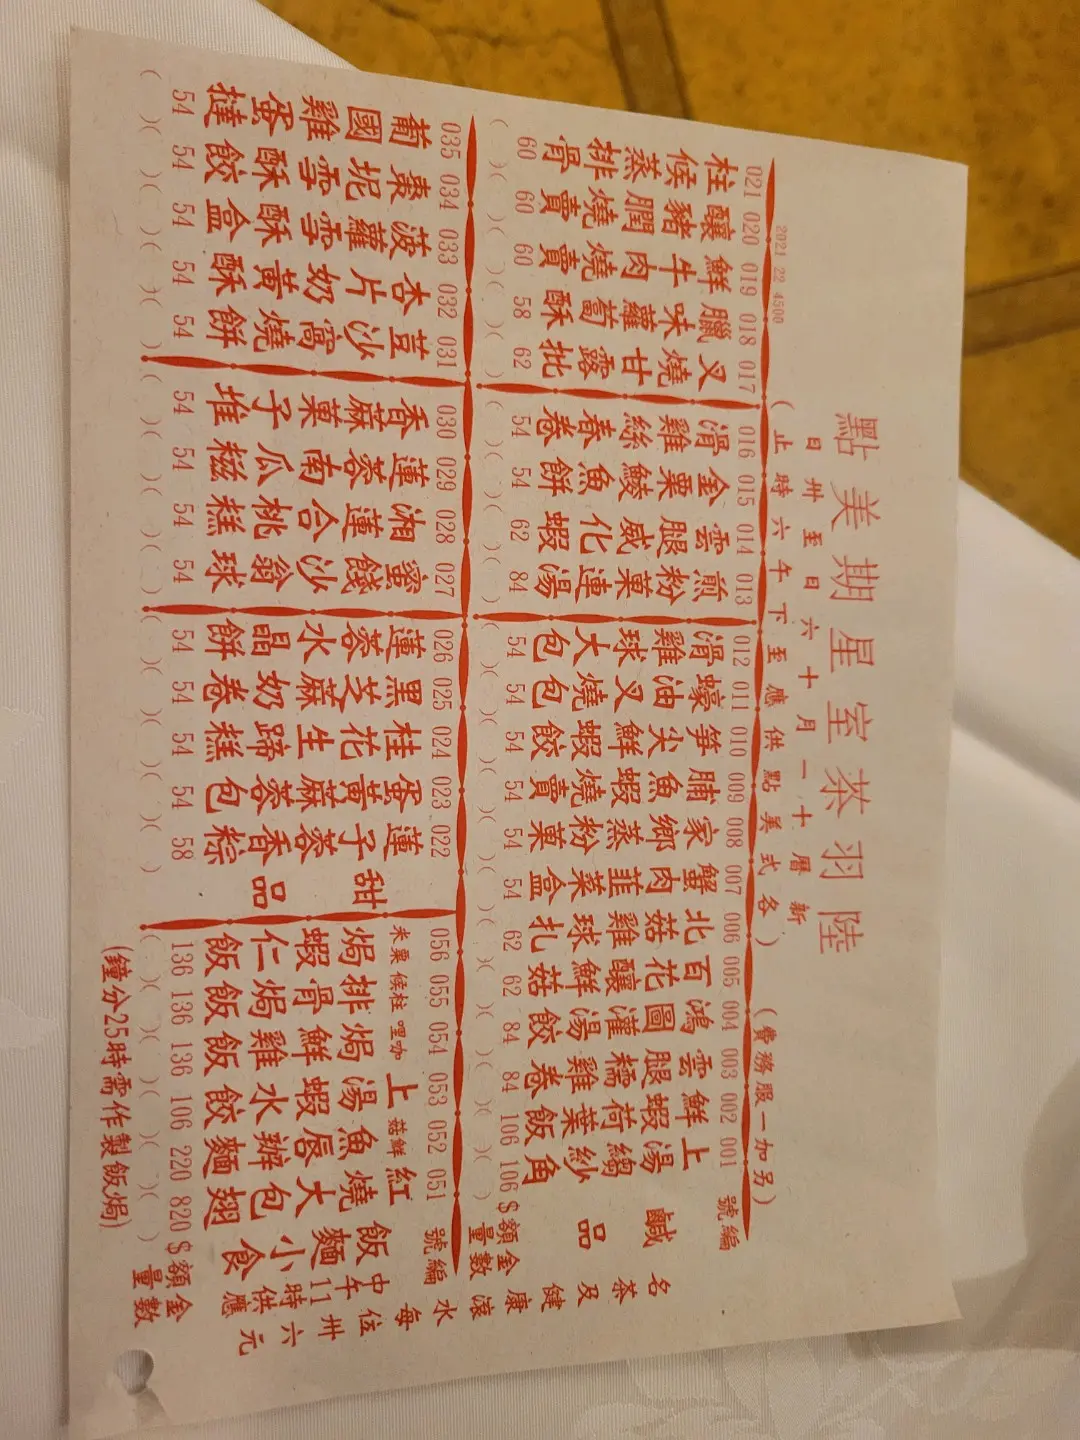 陸羽茶室星期美點
新曆十一月十六日至卅日
(各式美點供應至下午六時止)
(另加一服務費)
2021 22 4500
編號 001 002 003 004 005 006 007 008 009 010 011 012 013 014 015 016 017 018 019 020 021
鹹品
上湯縐紗角
鮮蝦荷葉飯
雲腿糯雞卷
鴻圖灌湯餃
百花釀鮮菇
北菇雞球扎
蟹肉韮菜盒
家鄉蒸粉菓
脯魚蝦燒賣
笋尖鮮蝦餃
蠔油叉燒包
滑雞球大包
煎粉菓連湯
雲腿威化蝦
金粟鯪魚餅
滑雞絲春卷
叉燒甘露批
臘味蘿蔔酥
鮮牛肉燒賣
釀豬膶燒賣
柱候蒸排骨
金額$ 106 106 84 84 62 62 54 54 54 54 54 54 84 62 54 54 62 58 60 60 60
數量 ( )( )( )( )( )( )( )( )( )( )( )( )( )( )( )( )( )( )( )( )( )
編號 051 052 053 054 055 056 022 023 024 025 026 027 028 029 030 031 032 033 034 035
飯麵小食
中午11時供應
紅燒大包翅
鮮菇魚唇辦麵
上湯鮮蝦水餃
咖哩焗雞飯
柱候排骨焗飯
粟米焗蝦仁飯
甜品
蓮子蓉香粽
蛋黃麻蓉包
桂花生蹄糕
黑芝麻奶卷
蓮蓉水晶餅
蜜餞沙翁球
湘蓮合桃糕
蓮蓉南瓜糍
香麻菓子堆
豆沙窩燒餅
杏片奶黃酥
菠蘿雪酥盒
棗坭雪酥餃
葡國雞蛋撻
金額$ 820 220 106 136 136 136 58 54 54 54 54 54 54 54 54 54 54 54 54 54
數量 ( )( )( )( )( )( )( )( )( )( )( )( )( )( )( )( )( )( )( )( )
(焗飯製作需時25分鐘)
名茶及健康滾水每位卅六元